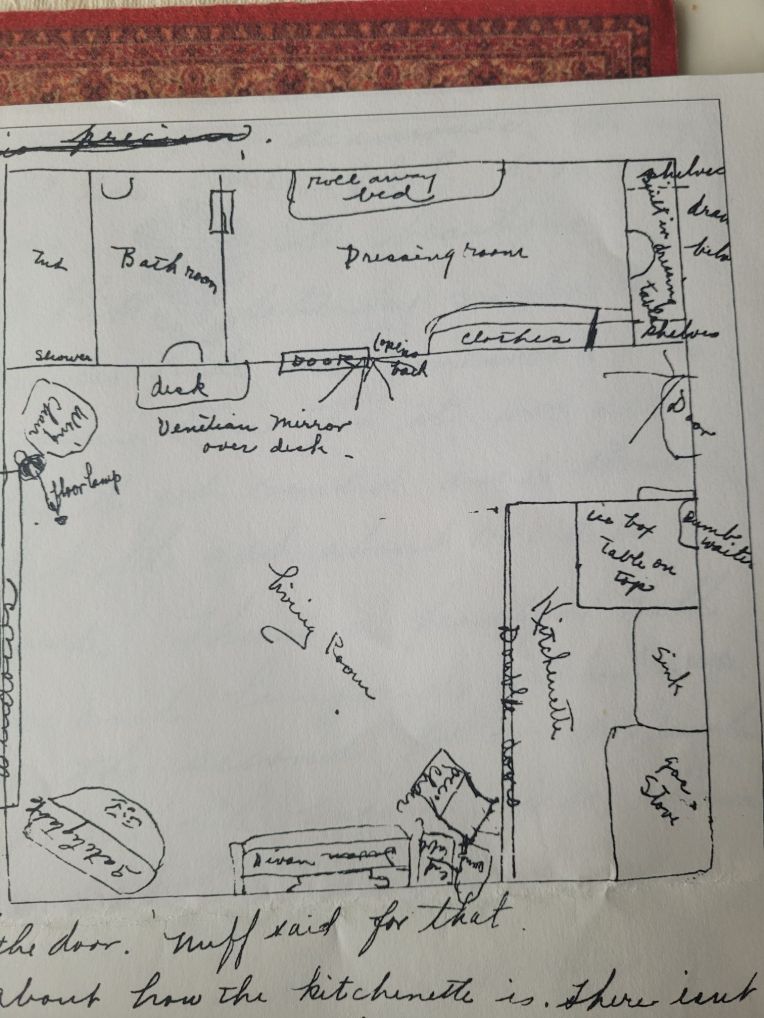 is precise.
roll away
bed
shelves
Built in dressing
table
shelves
Tub
Bathroom
Dressing room
clothes
Shower
desk
Door
opens
back
Venetian Mirror
over desk -
Wing
Chair
floor lamp
Door
Dumb
waiter
ice box
Table on
top
Living Room
Double doors
Kitchenette
Sink
gas
Stove
Chair
Gateleg table
Divan
end
the door. Nuff said for that.
about how the kitchenette is. There isnt